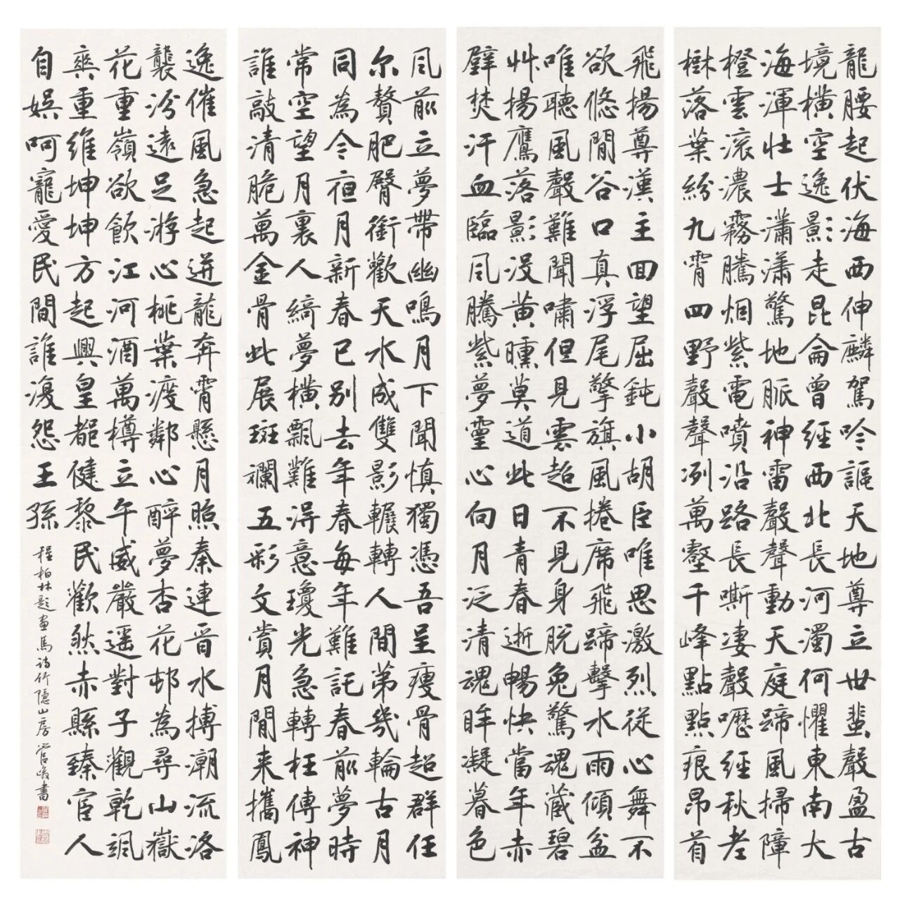 龍腰起伏海西伸麟駕吟謳天地尊立世蜚聲盈古
境橫空逸影走昆侖曾經西北長河濁何懼東南大
海渾壯士瀟瀟驚地脈神雷聲聲動天庭蹄風掃障
橙雲滾濃霧騰烟紫電噴沿路長嘶淒聲嚦經秋老
樹落葉紛九霄四野聲聲冽萬壑千峰點點痕昂首
飛揚尊漢主回望屈鈍小胡臣唯思激烈從心舞不
欲悠閒谷口真浮尾擎旗風捲席飛蹄擊水雨傾盆
唯聽風聲難聞嘯但見雲超不見身脫兔驚魂藏碧
艸揚鷹落影沒黃曛莫道此日青春逝暢快當年赤
壁焚汗血臨風騰紫夢靈心向月泛清魂眸凝暮色
風前立夢帶幽鳴月下聞慎獨憑吾呈瘦骨超群任
尔贅肥臀銜歡天水成雙影輾轉人間第幾輪古月
同為今夜月新春已別去年春每年難託春前夢時
常空望月裏人綺夢橫飄難得意瓊光急轉枉傳神
誰敲清脆萬金骨此展斑斕五彩文賞月閒来攜鳳
逸催風急起迸龍奔霄懸月照秦連晉水搏潮流洛
襲汾遠足游心桃葉渡鄰心醉夢杏花邨為尋山嶽
花重嶺欲飲江河酒萬樽立午威嚴遥對子觀乾颯
爽重維坤坤方起興皇都健黎民歡愁赤縣臻宦人
自娛呵寵愛民間誰復怨王孫
程柏林題畫馬詩竹隱山房管峻書